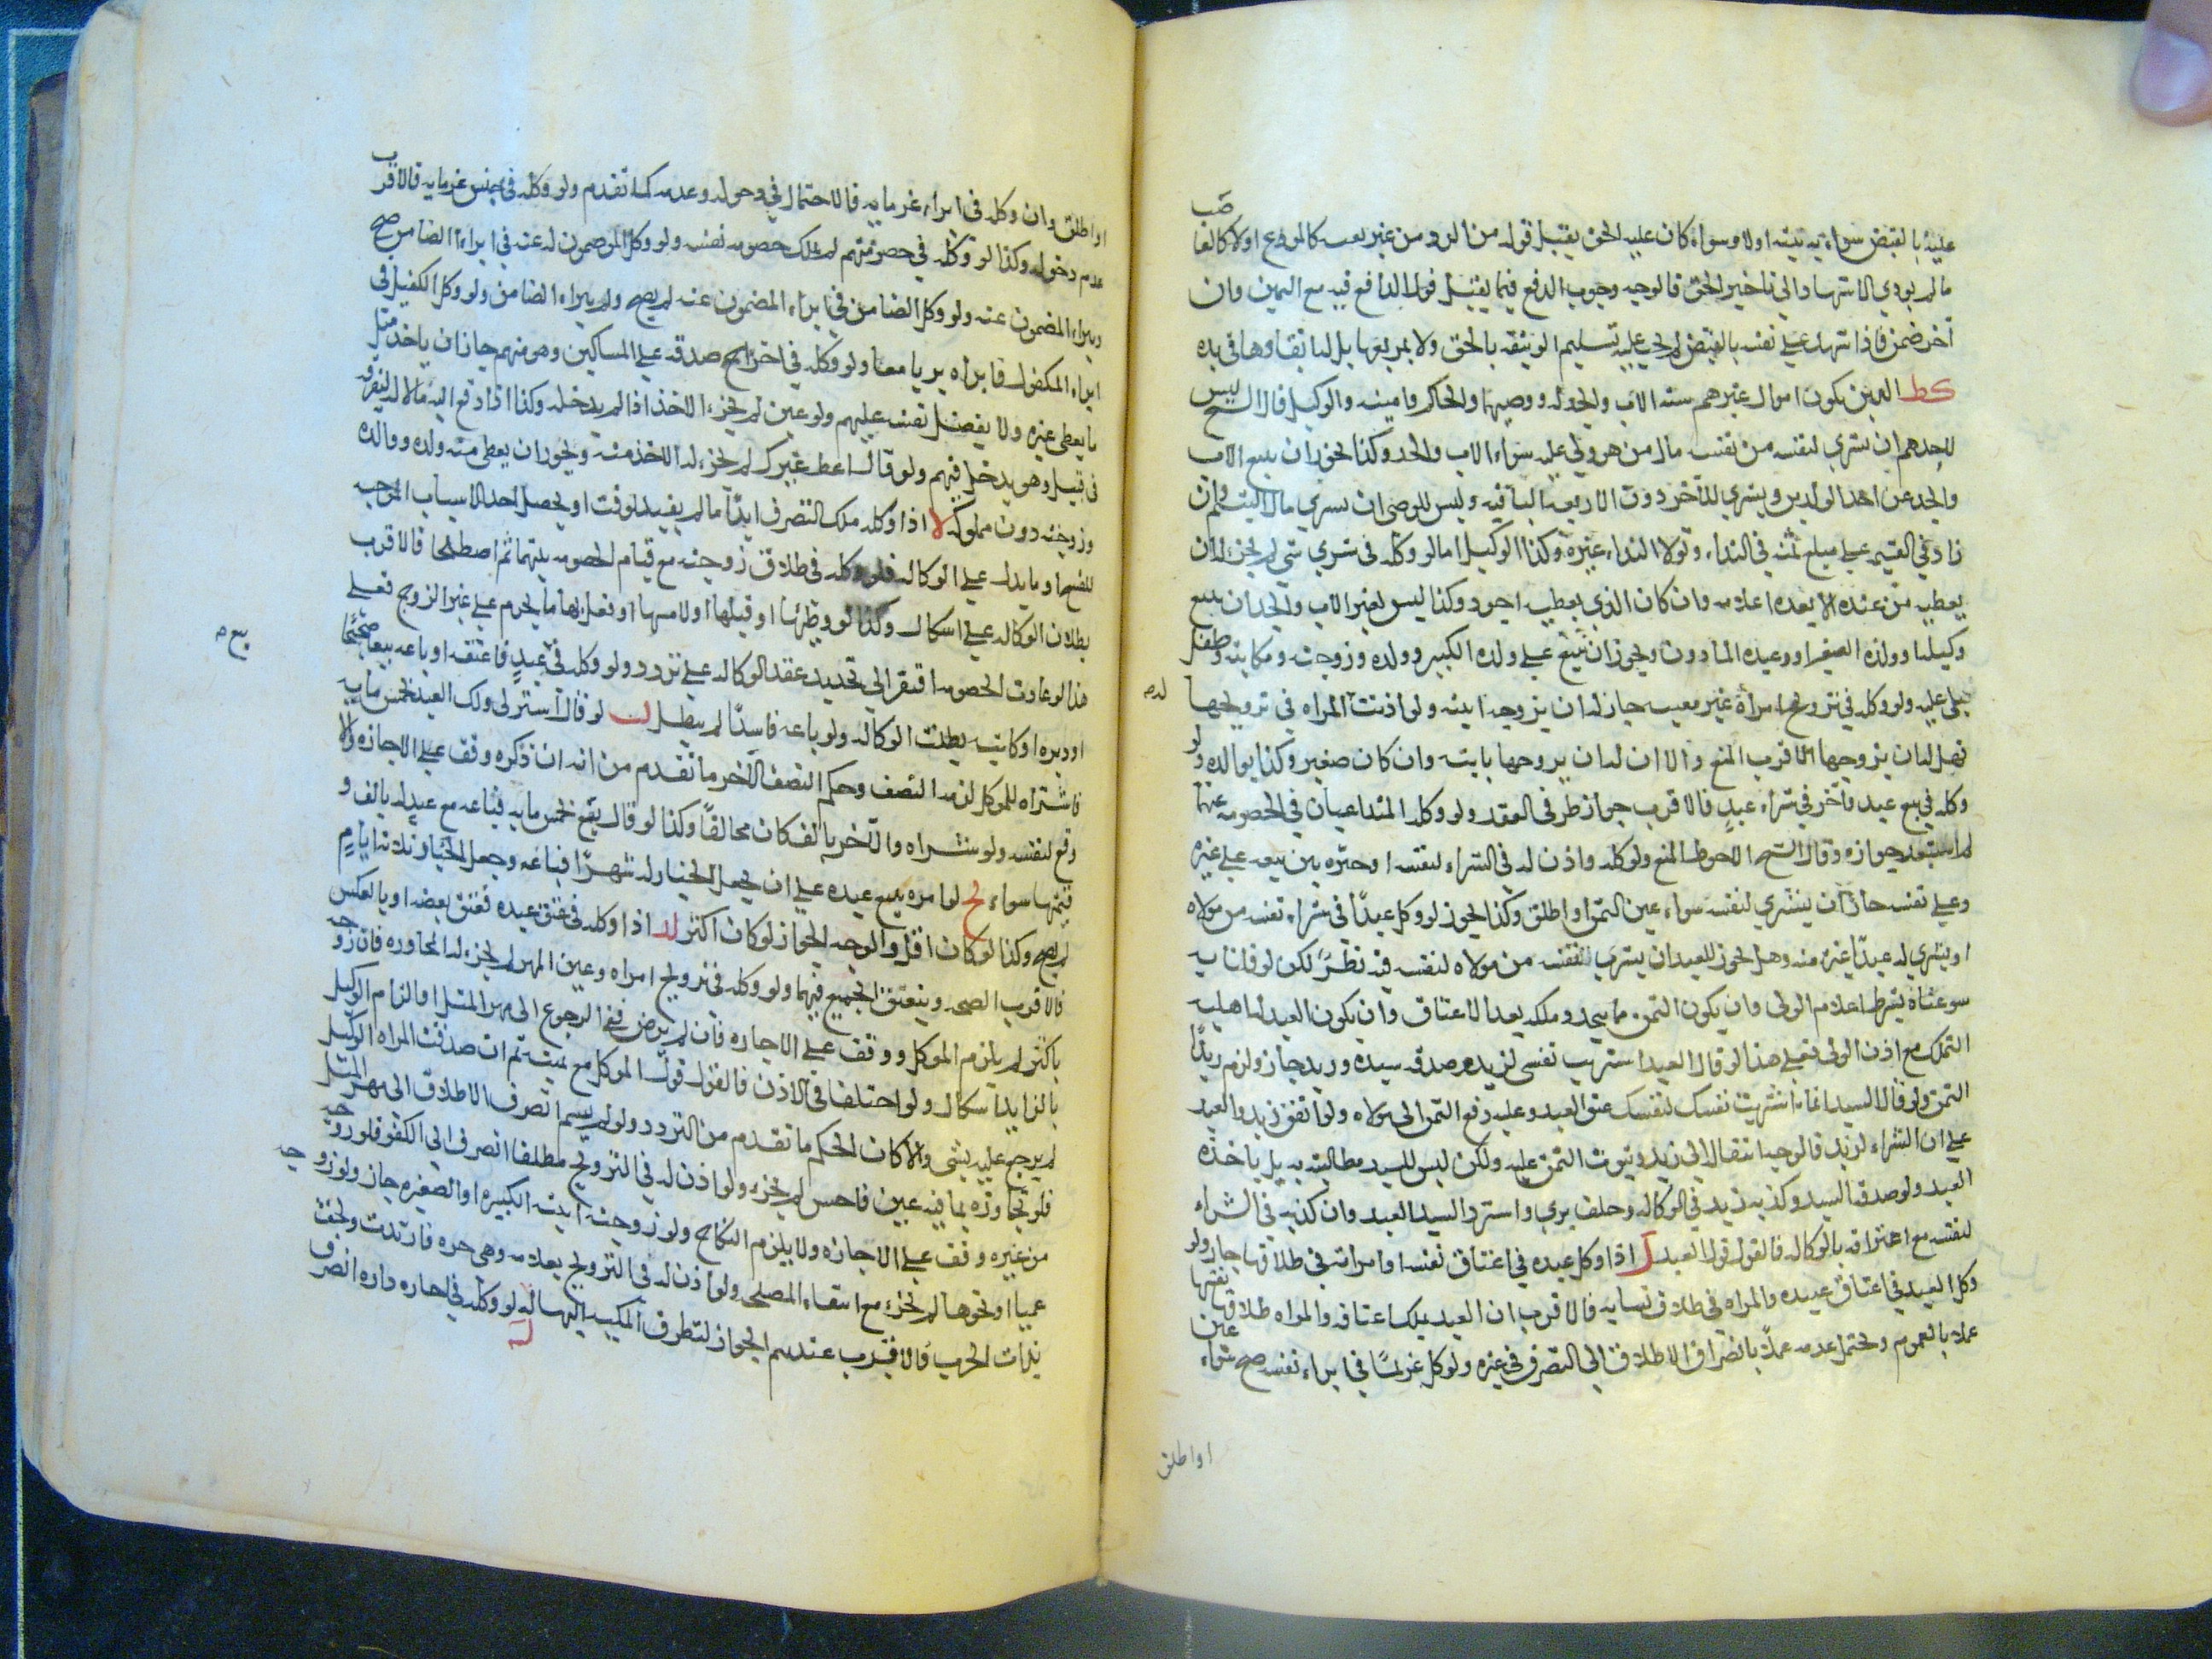 عليه بالقبض سواء به بينه اولا وسواء كان عليه الحق يقبل قوله من الرد ومن غير بعب كالمودع اولا كالغا
صب
ما لم يودي الاشهاد الي تاخير الحق فالوجه وجوب الدفع فيما يقبل قول الدافع فيه مع اليمين وان
آخر ضمن فاذا شهد علي نفسه بالقبض لم يجب عليه تسليم الوثيقه بالحق ولا بمريعها بل له ابقاوها في يده
كط الذين يكون اموال غيرهم سته الاب والجد له ووصيهما والحاكم وامينه والوكيل قال الشيخ ليس
لاحدهم ان يشري لنفسه من نفسه مال من هو ولي عليه سواء الاب والجد وكذا يجوز ان يبيع الاب
والجد عن احد الولدين ويشري للآخر دون الاربعه الباقيه وليس للوصي ان يشري مال اليتيم وان
زاد في القيمه علي مبلغ ثمنه في النداء وتولا النداء غيره وكذا الوكيل اما لو وكله في شري شي لم يجز له ان
يعطيه من عنده الا بعد اعلامه وان كان الذي يعطيه اجود وكذا ليس لغير الاب والجد ان يبيع
وكيلا او ولده الصغير او عبده الماذون ويجوز ان يبيع علي ولده الكبير ووالده وزوجته ومكاتبه وطفل
يلي عليه ولو وكله في تزويج امرأة غير معينه جاز له ان يزوجه ابنته ولو اذنت المراه في تزويجها
لدم
فهل له ان يزوجها الاقرب المنع والا ان له ان يزوجها بابنه وان كان صغير وكذا بوالده ولو
وكله في بيع عبد وآخر في شراء عبد فالاقرب جواز طرفي العقد ولو وكله المتداعيان في الخصومه عنهما
لم استبعد جوازه وقال الشيخ الاحوط المنع ولو وكله واذن له في الشراء لنفسه او خيره بين بيعه علي غيره
وعلي نفسه جاز ان يشتري لنفسه سواء عين الثمن او اطلق وكذا يجوز لو وكل عبدا في شراء نفسه من مولاه
او يشري له عبدا غيره منه وهل يجوز للعبد ان يشري نفسه من مولاه لنفسه فيه نظر لكن لو قلنا به
سوغناه بشرط اعلام المولى وان يكون الثمن مما يتجدد ملكه بعد الاعتاق وان يكون العبد له اهليه
التملك مع اذن المولى فعلى هذا لو قال العبد اشتريت نفسي لزيد وصدقه سيده وزيد جاز ولزم زيدا
الثمن ولو قال السيد انما اشتريت نفسك لنفسك عتق العبد وعليه دفع الثمن الى مولاه ولو اتفق زيد والعبد
علي ان الشراء لزيد فالوجه انتقاله الى زيد وثبوت الثمن عليه ولكن ليس للسيد مطالبته به بل ياخذه
العبد ولو صدقه السيد وكذبه زيد في الوكاله وحلف بري واسترد السيد العبد وان كذبه في الشراء
لنفسه مع اعترافه بالوكاله فالقول قول العبد ل اذا وكل عبده في اعتاق نفسه او امراته في طلاقها جاز ولو
وكل العبد في اعتاق عبيده والمراه في طلاق نسايه فالاقرب ان العبد يملك اعتاقه والمراه طلاق نفسها
عملا بالعموم ويحتمل عدمه عملا بانصراف الاطلاق الي التصرف في غيره ولو وكل غريما في ابراء نفسه صح سواء عين
او اطلق
او اطلق وان وكله في ابراء غرمايه فالاحتمال في دخوله وعدمه كما تقدم ولو وكله في حبس غرمايه فالاقرب
عدم دخوله وكذا لو وكله في خصومتهم لم يملك خصومه نفسه ولو وكل المضمون له عنه في ابراء الضامن صح
وبراء المضمون عنه ولو وكل الضامن في ابراء المضمون عنه لم يصح ولم يبراء الضامن ولو وكل الكفيل في
ابراء المكفول فابراه بريا معا ولو وكله في اخراج صدقه علي المساكين وهو منهم جاز ان ياخذ مثل
ما يعطي غيره ولا يفضل نفسه عليهم ولو عين لم يجز الاخذ اذا لم يدخله وكذا اذا دفع اليه مالا ليفرقه
في قبيل وهو يدخل فيهم ولو قال اعط غيرك لم يجز له الاخذ منه ويجوز ان يعطي منه ولده ووالده
وزوجته دون مملوكه لا اذا وكله ملك التصرف ابدا ما لم يقيد بوقت او يحصل احد الاسباب الموجبه
للفسخ او ما يدل علي الوكاله فلو وكله في طلاق زوجته مع قيام الخصومه بينهما ثم اصطلحا فالاقرب
بطلان الوكاله علي اشكال وكذا لو وطئها او قبلها او لامسها او فعل بها ما يحرم علي غير الزوج فعلي
هذا لو عادت الخصومه افتقر الي تجديد عقد الوكاله علي تردد ولو وكله في عبد فاعتقه او باعه بيعا صحيحا
بيع م
او دبره او كاتبه بطلت الوكاله ولو باعه فاسدا لم يبطل لب لو قال اشتر لي ولك العبد بخمس مايه
فاشتراه للموكل لزمه النصف وحكم النصف الآخر ما تقدم من انه ان ذكره وقف علي الاجازه والا
وقع لنفسه ولو شراه والآخر بالف كان مخالفا وكذا لو قال بع بخمس مايه فباعه مع عبد له بالف و
قيمتها سواء لح لو امره ببيع عبده علي ان يجعل الخيار له شهرا فباعه وجعل الخيار ثلاثه ايام
لم يصح وكذا لو كان اقل والوجه الجواز لو كان اكثر لد اذا وكله في عتق عبده فعتق بعضه او بالعكس
فالاقرب الصحه وينعتق الجميع فيهما ولو وكله في تزويج امراه وعين المهر لم يجز له المجاوزه فان زوجه
باكثر لم يلزم الموكل ووقف علي الاجازه فان لم يرض ففي الرجوع الى مهر المثل او الزام الوكيل
بالزايد اشكال ولو اختلفا في الاذن فالقول قول الموكل مع يمينه ثم ان صدقت المراه الوكيل
لم يرجع عليه بشي والا كان الحكم ما تقدم من التردد ولو لم يسم انصرف الاطلاق الى مهر المثل
فلو تجاوزه بما فيه غبن فاحش لم يجز ولو اذن له في التزويج مطلقا انصرف الي الكفو فلو زوجه
من غيره وقف علي الاجازه ولا يلزم النكاح ولو زوجته ابنته الكبيره او الصغيره جاز ولو زوجه
عميا او نحوها لم يجز مع انتفاء المصلحه ولو اذن له في التزويج بعلامه وهي حره فارتدت ولحقت
بدار الحرب فالاقرب عندهم الجواز لتطرف المكيه اليها له لو وكله في اجاره داره انصرف
له